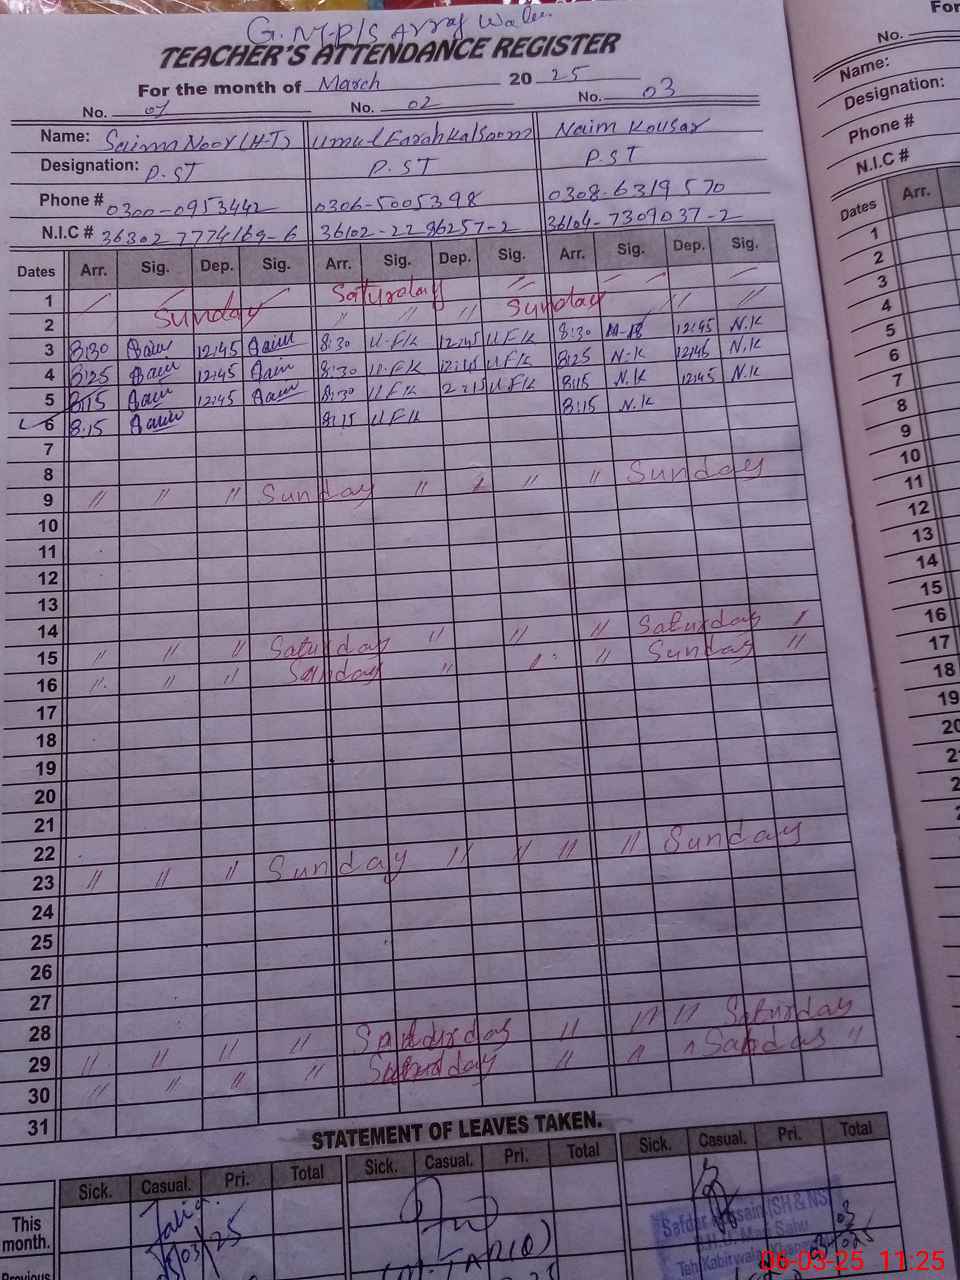 G.M.P/S Array Wala
TEACHER'S ATTENDANCE REGISTER
For the month of March 2025
No. 01 No. 02 No. 03
Name: Saima Noor (H-T) Umul Farah Kalsoom Naim Kousar
Designation: P.ST P.ST P.ST
Phone # 0300-0953442 0306-5005398 0308-6319570
N.I.C # 36302 7774169-6 36102-2286257-2 36104-7309037-2
Dates Arr. Sig. Dep. Sig. Arr. Sig. Dep. Sig. Arr. Sig. Dep. Sig.
1 Saturday
2 Sunday " " " Sunday " "
3 8:30 Saim 12:45 Saim 8:30 U.F.K 12:45 U F K 8:30 12:45 N.K
4 8:25 Saim 12:45 Saim 8:30 U.F.K 12:45 U F K 8:25 N.K 12:45 N.K
5 8:15 Saim 12:45 Saim 8:30 U F K U F K 8:15 N.K 12:45 N.K
6 8:15 Saim 8:15 U F K 8:15 N.K
7
8
9 " " " Sunday " " " " Sunday
10
11
12
13
14
15 " " " Saturday " " " Saturday "
16 " " " Sunday " " " Sunday "
17
18
19
20
21
22
23 " " " Sunday " " " " Sunday
24
25
26
27
28
29 " " " " Saturday " " " Saturday
30 " " " " " " "
31
STATEMENT OF LEAVES TAKEN.
Sick. Casual. Pri. Total Sick. Casual. Pri. Total Sick. Casual. Pri. Total
This month.
Tariq
03/25
(M. TARIQ)
Safdar Hussain (SH & NS)
Previous
06-03-25 11:25
For
No.
Name:
Designation:
Phone #
N.I.C #
Dates Arr.
1
2
3
4
5
6
7
8
9
10
11
12
13
14
15
16
17
18
19
20